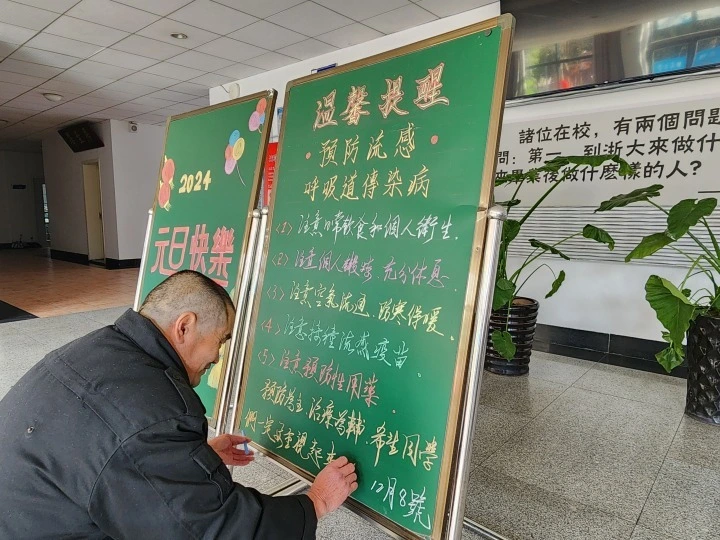 2024
元旦快樂
溫馨提醒
·預防流感·
呼吸道傳染病
<1>注意日常飲食和個人衛生.
<2>注意個人鍛煉 充分休息
<3>注意空氣流通、防寒保暖.
<4>注意接種流感疫苗.
<5>注意預防性用藥.
預防為主 治療為輔 希望同學
們一定要重視起來
12月8號
諸位在校，有兩個問題
問：第一，到浙大來做什
畢業後做什麽樣的人？